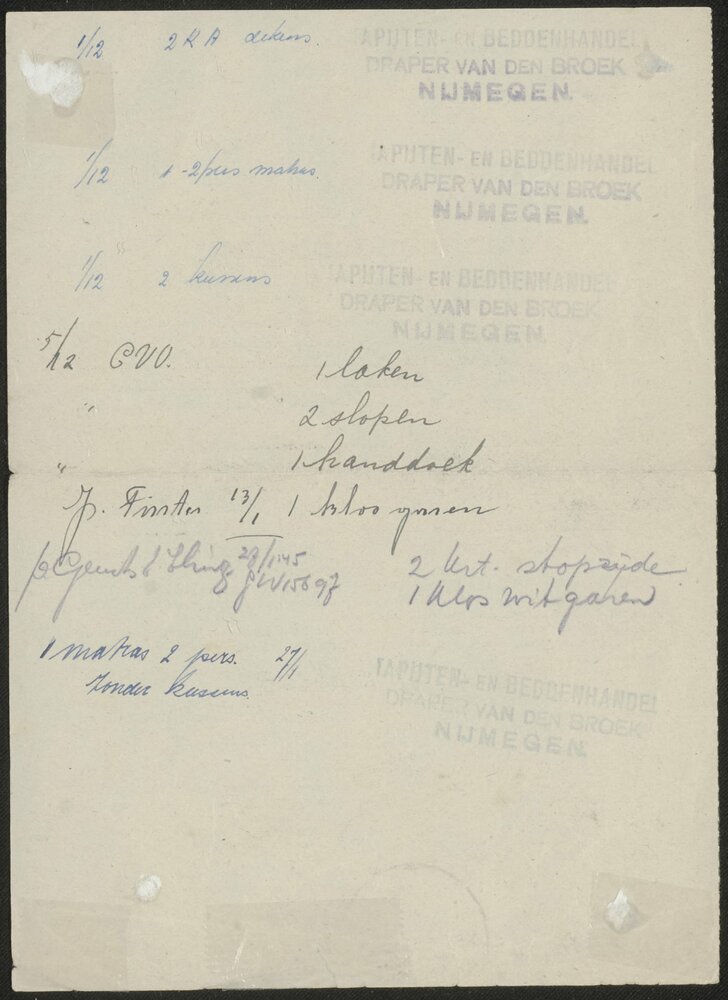 1/12 2 KA dekens. TAPIJTEN- EN BEDDENHANDEL
DRAPER VAN DEN BROEK
NIJMEGEN.
1/12 1 - 2 pers matras. TAPIJTEN- EN BEDDENHANDEL
DRAPER VAN DEN BROEK
NIJMEGEN.
1/12 2 kussens TAPIJTEN- EN BEDDENHANDEL
DRAPER VAN DEN BROEK
NIJMEGEN.
5/12 CVO. 1 laken
" 2 slopen
" 1 handdoek
13/1 1 klos garen
29/1 45 2 krt. stopzijde
1 klos wit garen
1 matras 2 pers. 27/1
zonder kussens.
TAPIJTEN- EN BEDDENHANDEL
DRAPER VAN DEN BROEK
NIJMEGEN.